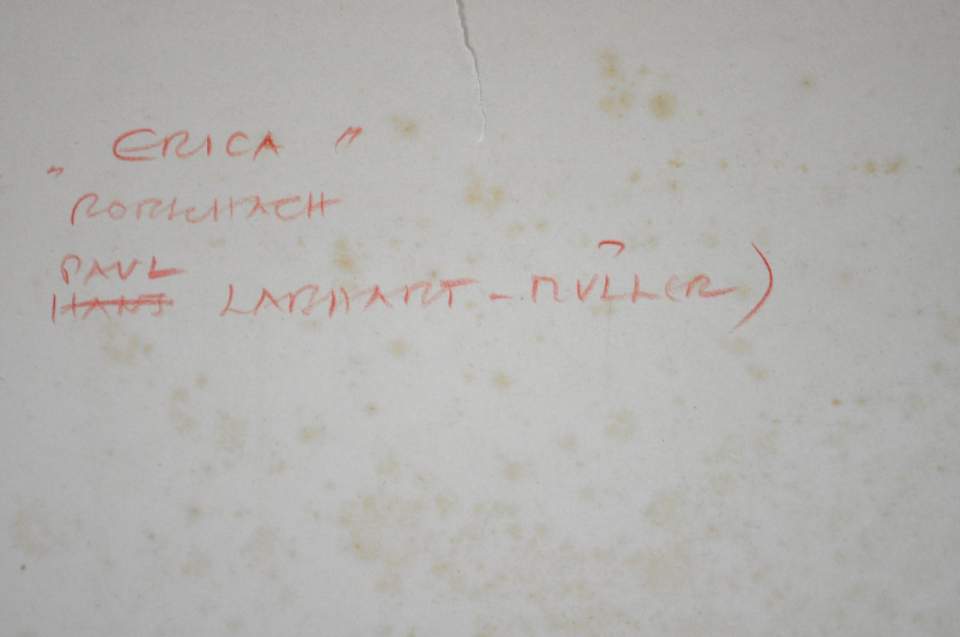 „ ERICA "
RORSCHACH
PAUL
HANS LABHART - MÜLLER )